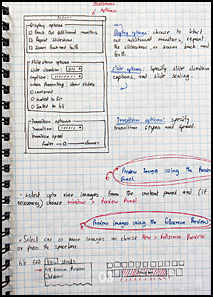 Slideshow
options
Display options
Black out additional monitors
Repeat slideshow
Zoom back and forth
Display options: choose to black
out additional monitors, repeat
the slideshow or zoom back and
forth
Slideshow options
Slide duration:
Captions:
When Presenting, show slides:
Centered
Scaled to fit
Scaled to fill
Slide options: Specify slide duration
captions, and slide scaling.
Transition options
Transition:
Transition speed
Faster Slower
Transition options: specify
transition styles and speed
Preview images using the Preview
Panel
Select one or more images in the content panel and (if
necessary) choose Window > Preview Panel
Preview images using the Fullscreen Preview
Select one or more images and choose View > Fullscreen Preview
or press the spacebar.
File Edit View Stacks
Full Screen Preview
Slideshow